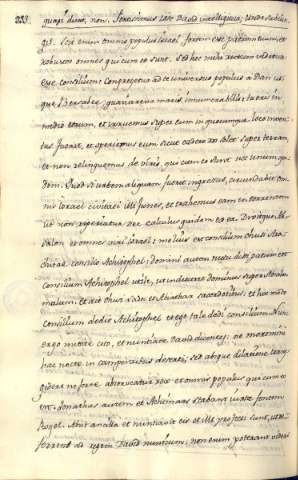 233.
quasi dicat, non.
est enim omnis populus Israel fortem esse patrem tuum, et
robustos omnes qui cum eo sunt. sed hoc mihi rectum videtur
esse consilium: Congregetur ad te universus populus a Dan us-
que Bersabee, quasi arena maris innumerabilis: tu eris in
medio eorum, et irruemus super eum in quocumque loco inven-
tus fuerit, et operiemus eum sicut cadere solet super terram
et non relinquemus de viris, qui cum eo sunt ne unum qui-
dem. Quod si urbem aliquam fuerit ingressus, circumdabit om-
nis Israel civitati illi funes, et trahemus eam in torrentem
ut non reperiatur ne calculus quidem ex ea. Dixitque Ab-
salon et omnes viri Israel: melius est consilium Chusi Ara-
chitae consilio Achitophel: domini autem nutu
consilium Achitophel utile, ut induceret dominus super Absalon
malum. et ait Chusi Sadoc et Abiathar sacerdotibus: et hoc modo
consilium dedit Achitophel et ego tale dedi consilium. Nunc
ergo mittite cito, et nuntiate David dicentes: ne moreris
hac nocte in campestribus deserti, sed absque dilatione trans-
gredere ne forte absorbeatur rex et omnis populus qui cum eo
est. Jonathas autem et Achimaas stabant iuxta fontem
Rogel. Abiit ancilla et nuntiavit eis et illi profecti sunt, ut re-
ferrent ad regem David nuntium. non enim poterant videri